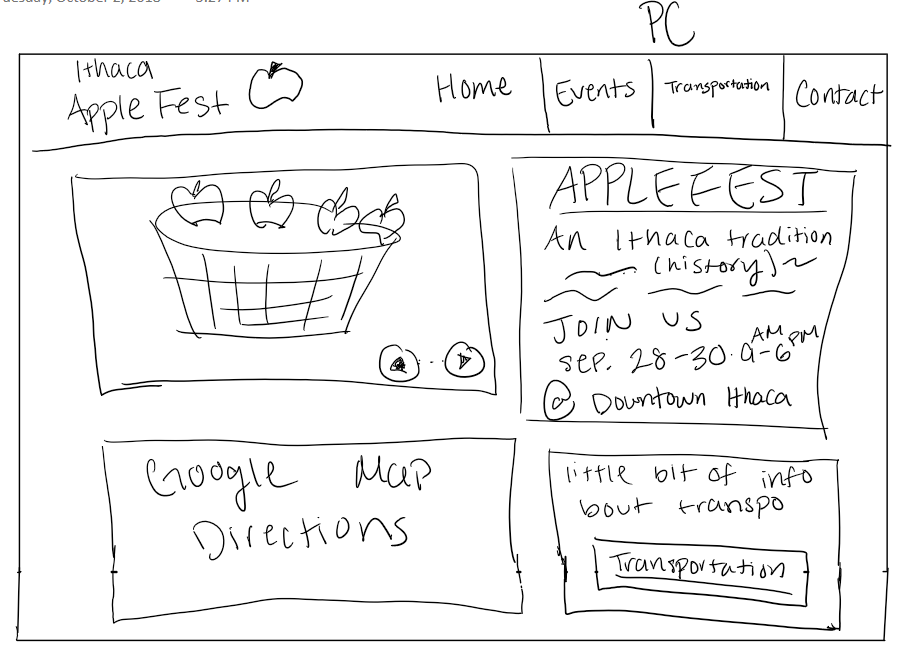 PC
Ithaca
Apple Fest
Home
Events
Transportation
Contact
APPLEFEST
An Ithaca tradition
(history)
JOIN US
sep. 28-30. 9AM-6PM
@ Downtown Ithaca
Google Map
Directions
little bit of info
bout transpo
Transportation